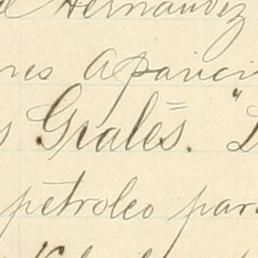 Hernandez
Aparici
Grales. "L
petroleo par